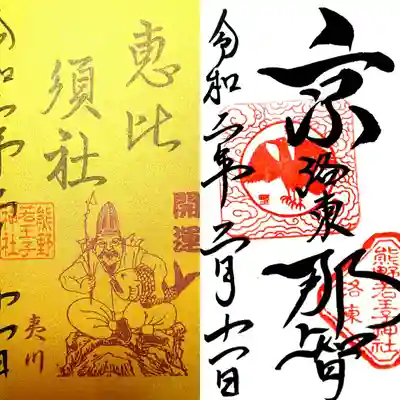 開運
恵比
須社
夷川
熊野
若王子
神社
京洛東那智
熊野若王子神社
洛東
令和二年二月十一日